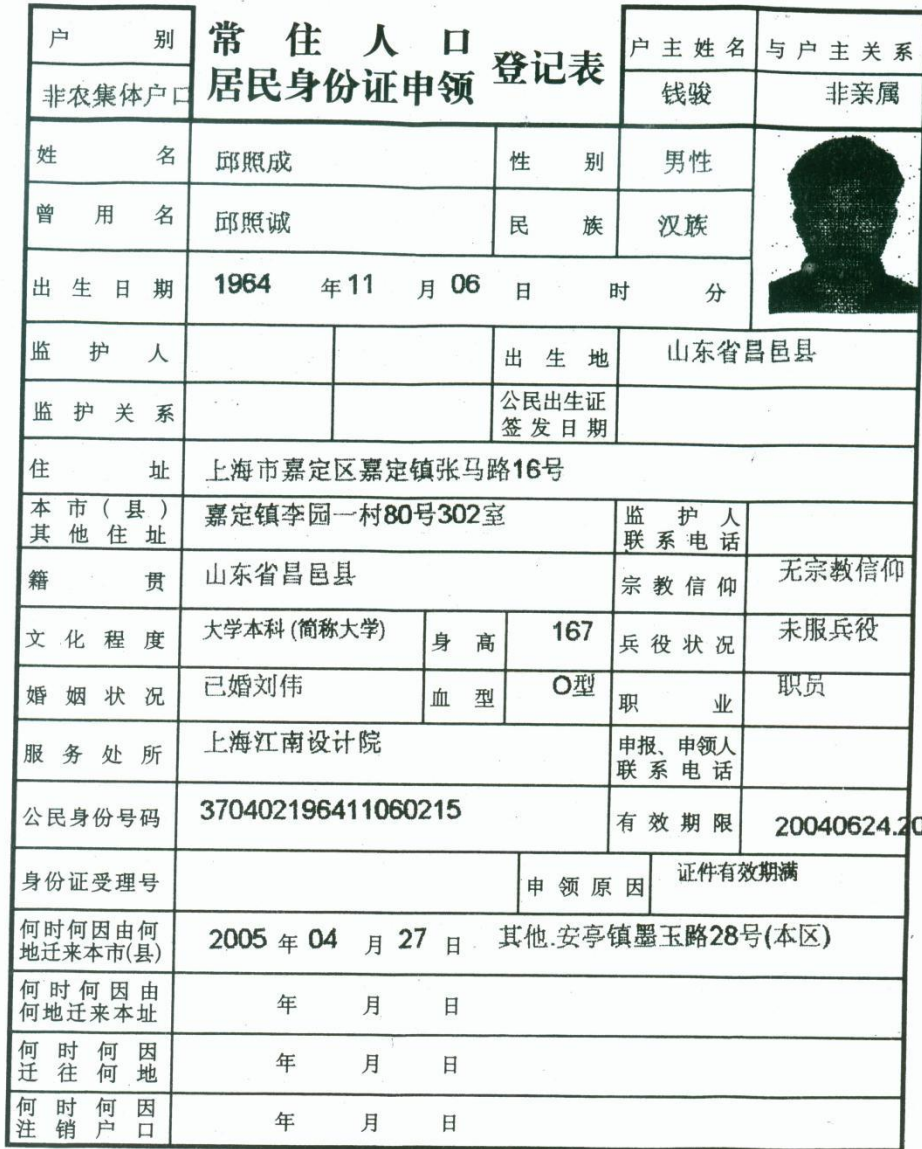 户别 常住人口 登记表 户主姓名 与户主关系
非农集体户口 居民身份证申领 钱骏 非亲属
姓名 邱照成 性别 男性
曾用名 邱照诚 民族 汉族
出生日期 1964 年 11 月 06 日 时 分
监护人 出生地 山东省昌邑县
监护关系 公民出生证
签发日期
住址 上海市嘉定区嘉定镇张马路16号
本市(县)
其他住址 嘉定镇李园一村80号302室 监护人
联系电话
籍贯 山东省昌邑县 宗教信仰 无宗教信仰
文化程度 大学本科(简称大学) 身高 167 兵役状况 未服兵役
婚姻状况 已婚刘伟 血型 O型 职业 职员
服务处所 上海江南设计院 申报、申领人
联系电话
公民身份号码 370402196411060215 有效期限 20040624.20
身份证受理号 申领原因 证件有效期满
何时何因由何
地迁来本市(县) 2005 年 04 月 27 日 其他.安亭镇墨玉路28号(本区)
何时何因由
何地迁来本址 年 月 日
何时何因
迁往何地 年 月 日
何时何因
注销户口 年 月 日